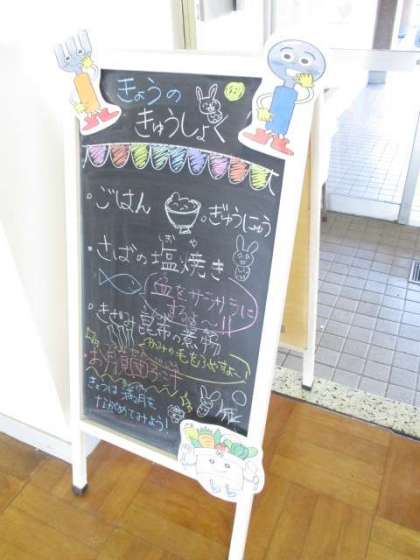 きょうの
きゅうしょく
・ごはん
・ぎゅうにゅう
しお や
・さばの塩焼き
血をサラサラに
するよ〜!!
・きざみ昆布の煮物
かみの毛をふやすよ〜
お月見
きょうは満月を
ながめてみよう!